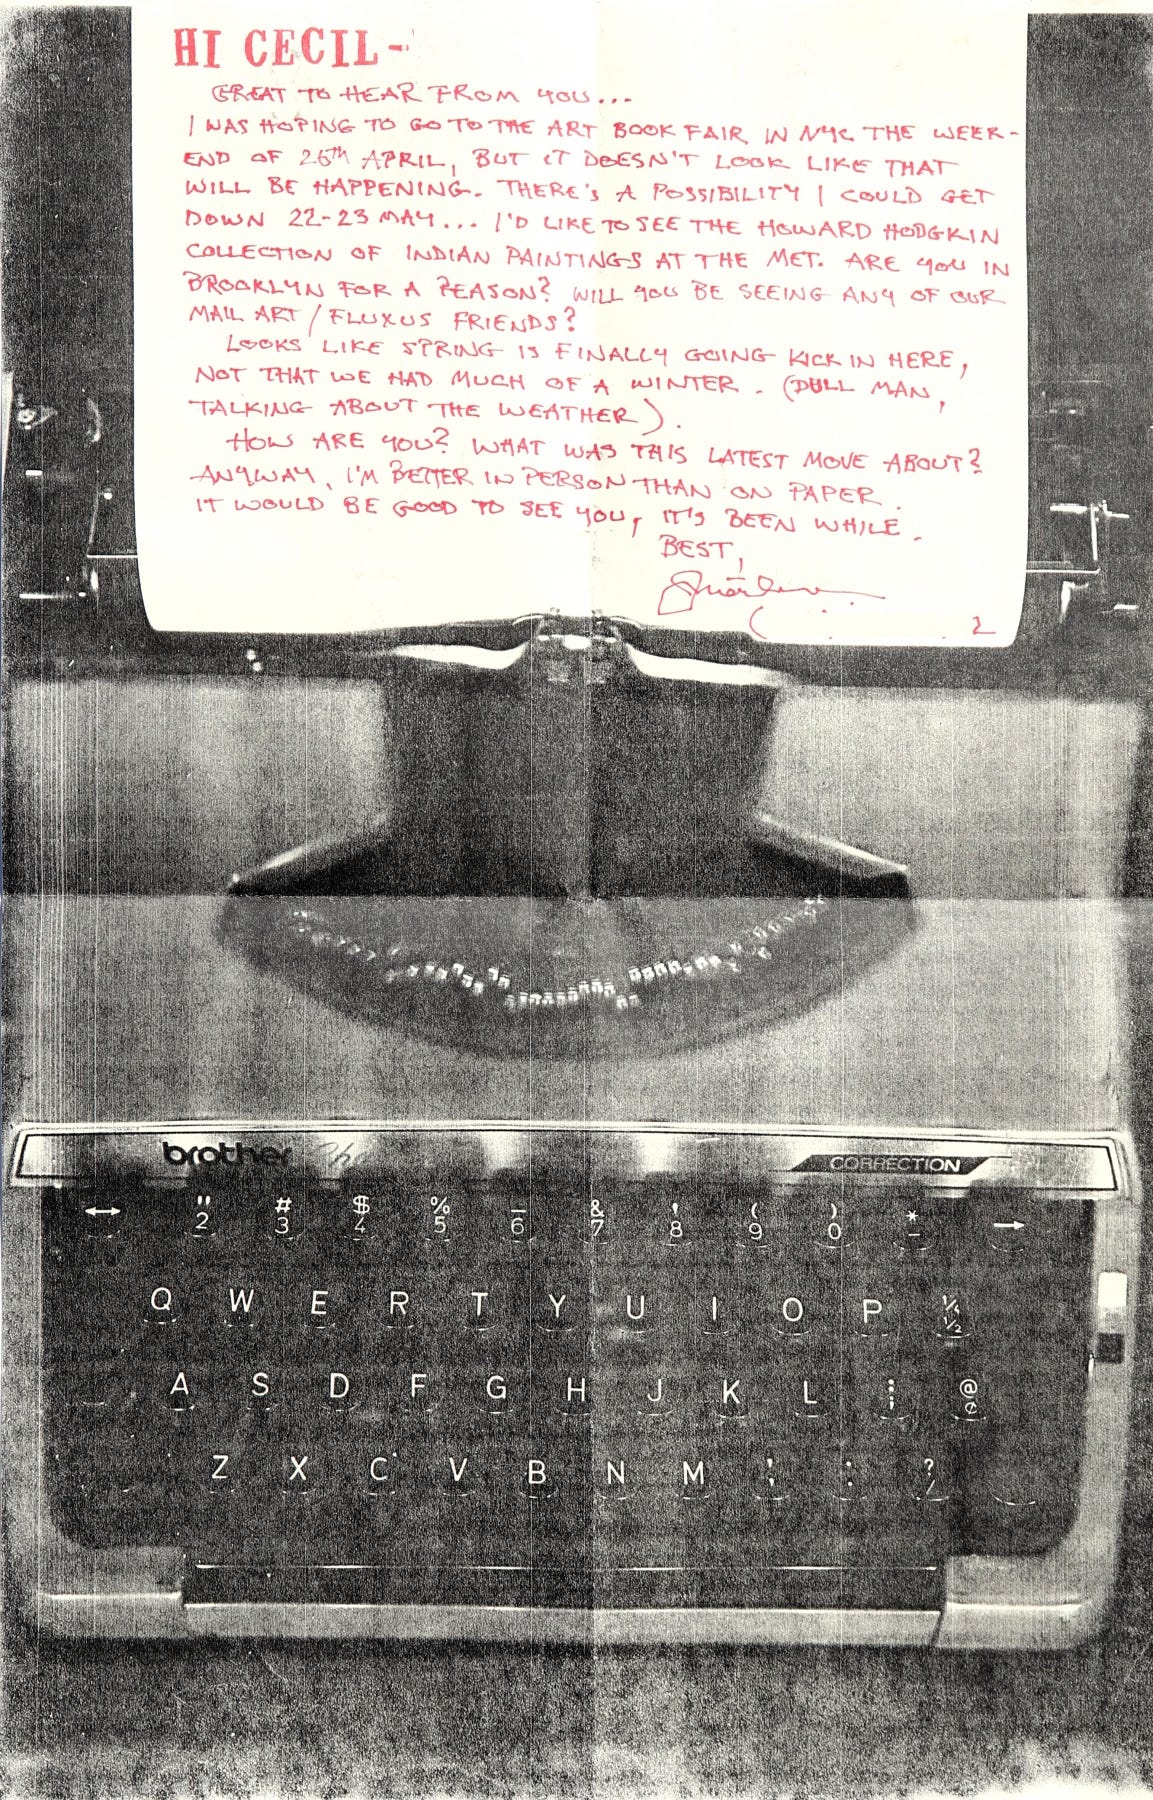 HI CECIL-
GREAT TO HEAR FROM YOU...
I WAS HOPING TO GO TO THE ART BOOK FAIR IN NYC THE WEEK-
END OF 26th APRIL, BUT IT DOESN'T LOOK LIKE THAT
WILL BE HAPPENING. THERE'S A POSSIBILITY I COULD GET
DOWN 22-23 MAY... I'D LIKE TO SEE THE HOWARD HODGKIN
COLLECTION OF INDIAN PAINTINGS AT THE MET. ARE YOU IN
BROOKLYN FOR A REASON? WILL YOU BE SEEING ANY OF OUR
MAIL ART / FLUXUS FRIENDS?
LOOKS LIKE SPRING IS FINALLY GOING KICK IN HERE,
NOT THAT WE HAD MUCH OF A WINTER. (DULL MAN,
TALKING ABOUT THE WEATHER).
HOW ARE YOU? WHAT WAS THIS LATEST MOVE ABOUT?
ANYWAY, I'M BETTER IN PERSON THAN ON PAPER.
IT WOULD BE GOOD TO SEE YOU, IT'S BEEN WHILE.
BEST,
2
brother
CORRECTION
↔ " # $ % _ & ' ( ) * →
2 3 4 5 6 7 8 9 0 -
Q W E R T Y U I O P ¼ ½
A S D F G H J K L : ; @ ¢
Z X C V B N M , . ? /